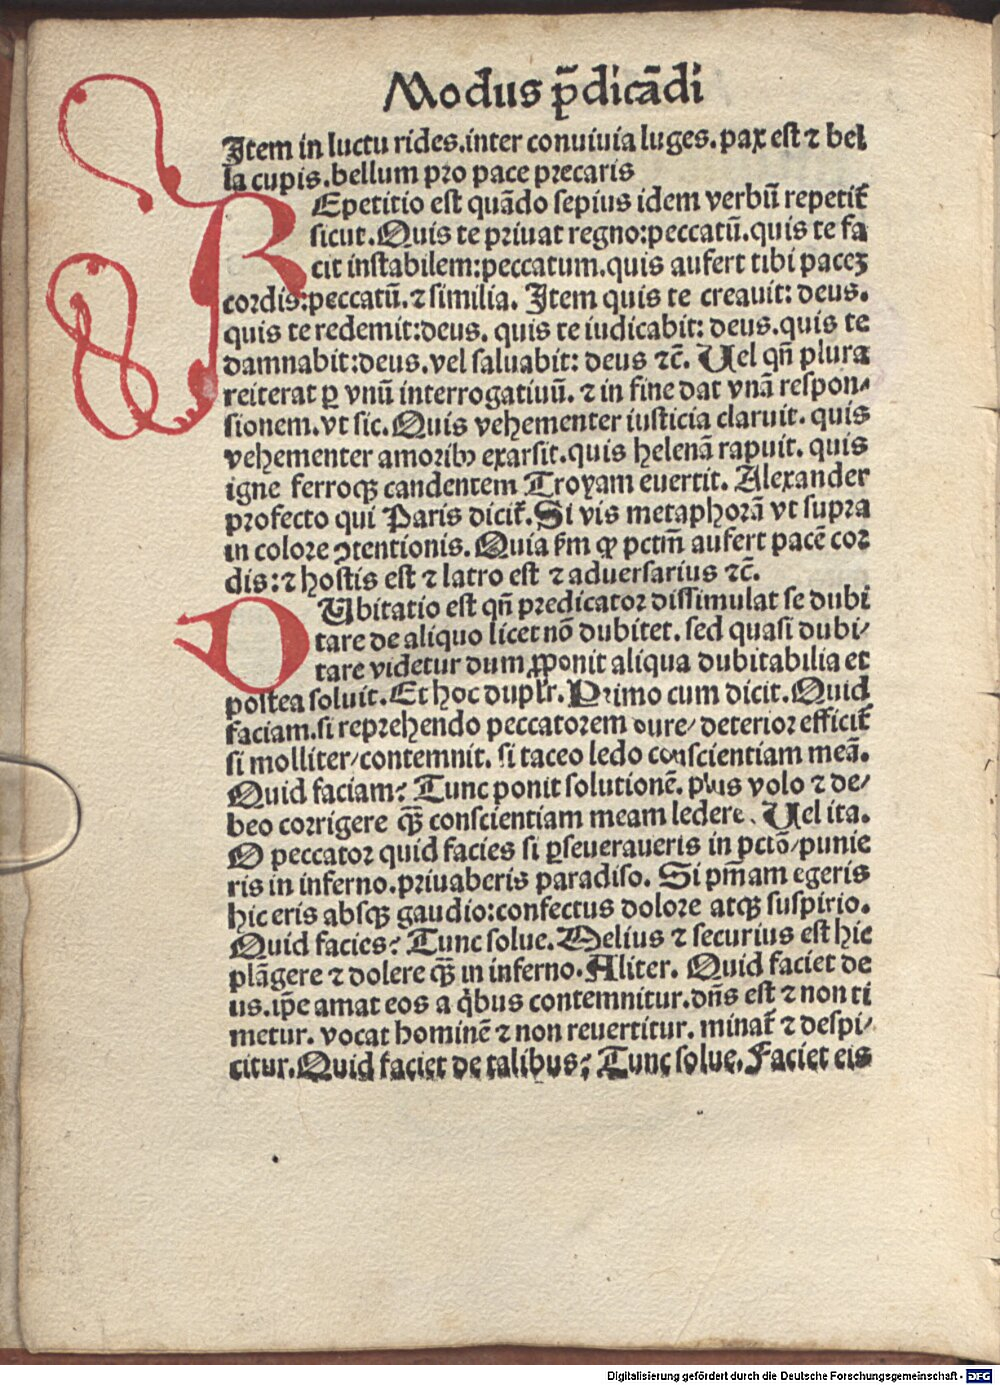 Modus p̄dicādi
Item in luctu rides.inter conuiuia luges.pax est ⁊ bel
la cupis.bellum pro pace precaris
REpetitio est quādo sepius idem verbū repetit᷑
sicut.Quis te priuat regno:peccatū.quis te fa
cit instabilem:peccatum.quis aufert tibi pacez
cordis:peccatū.⁊ similia. Item quis te creauit: deus.
quis te redemit:deus. quis te iudicabit: deus.quis te
damnabit:deus.vel saluabit: deus ⁊c̄. Uel qn̄ plura
reiterat ꝑ vnū interrogatiuū. ⁊ in fine dat vnā respon-
sionem.vt sic.Quis vehementer iusticia claruit. quis
vehementer amoribꝰ exarsit.quis helenā rapuit. quis
igne ferroqꝫ candentem Troyam euertit. Alexander
profecto qui Paris dicit᷑.Si vis metaphorā vt supra
in colore ꝯtentionis.Quia s̄m ꝙ pctm̄ aufert pacē cor
dis:⁊ hostis est ⁊ latro est ⁊ aduersarius ⁊c̄.
DUbitatio est qn̄ predicator dissimulat se dubi
tare de aliquo licet nō dubitet.sed quasi dubi/
tare videtur dum ꝓponit aliqua dubitabilia et
postea soluit.Et hoc duplr̄. Primo cum dicit.Quid
faciam.si reprehendo peccatorem dure/ deterior efficit᷑
si molliter/contemnit. si taceo ledo conscientiam meā.
Quid faciam? Tunc ponit solutionē. plus volo ⁊ de/
beo corrigere qꝫ̄ conscientiam meam ledere. Uel ita.
O peccator quid facies si ꝑseueraueris in pctō/punie
ris in inferno.priuaberis paradiso. Si pn̄iam egeris
hic eris absqꝫ gaudio:confectus dolore atqꝫ suspirio.
Quid facies? Tunc solue.Melius ⁊ securius est hic
plāgere ⁊ dolere qꝫ̄ in inferno.Aliter. Quid faciet de
us.ip̄e amat eos a qͥbus contemnitur.dn̄s est ⁊ non ti
metur. vocat hominē ⁊ non reuertitur. minat᷑ ⁊ despi/
citur.Quid faciet de talibus? Tunc solue.Faciet eis
Digitalisierung gefördert durch die Deutsche Forschungsgemeinschaft - DFG